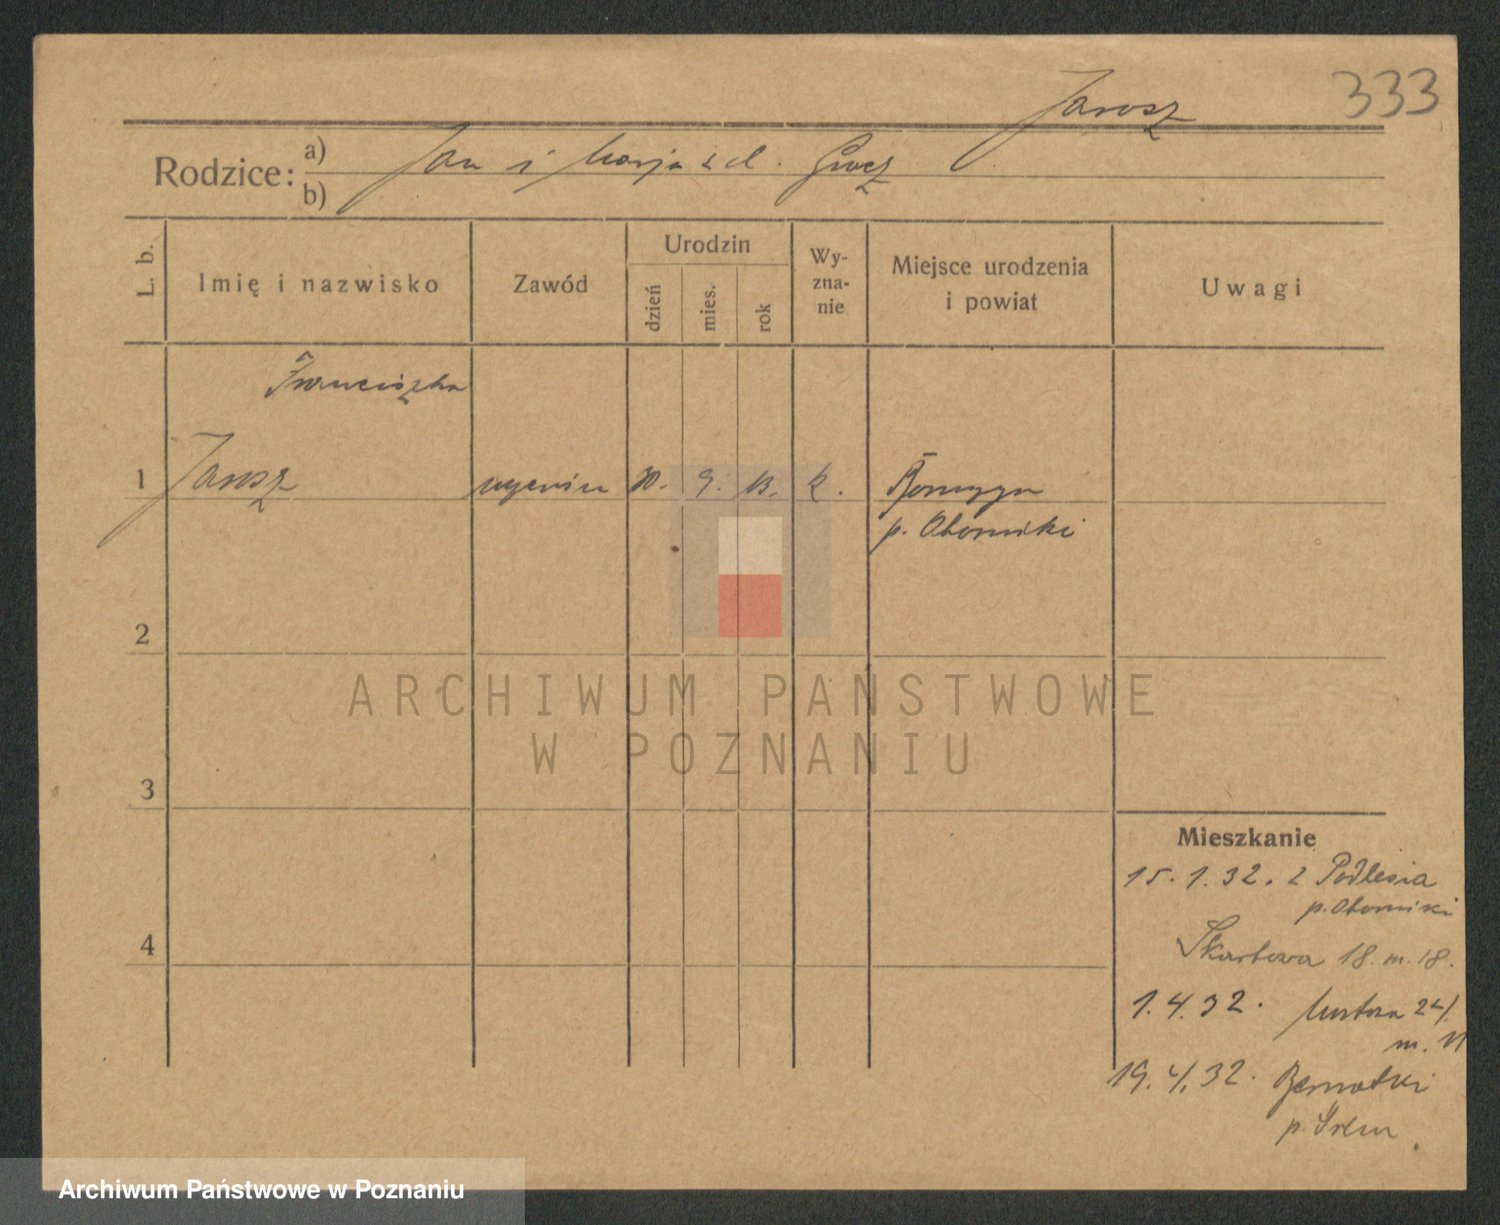 Jarosz 333
Rodzice: a) Jan i Marja z d.
b)
L. b.
Imię i nazwisko
Zawód
Urodzin
dzień
mies.
rok
Wy-
zna-
nie
Miejsce urodzenia
i powiat
Uwagi
Franciszka
1 Jarosz 9. 13. k.
p. Oborniki
2
3
4
Mieszkanie
15. 1. 32. z Podlesia
p. Oborniki
Skarbowa 18 m. 18.
1. 4. 32.
m.
19. 4. 32. Bernatki
p. Śrem
ARCHIWUM PAŃSTWOWE
W POZNANIU
Archiwum Państwowe w Poznaniu